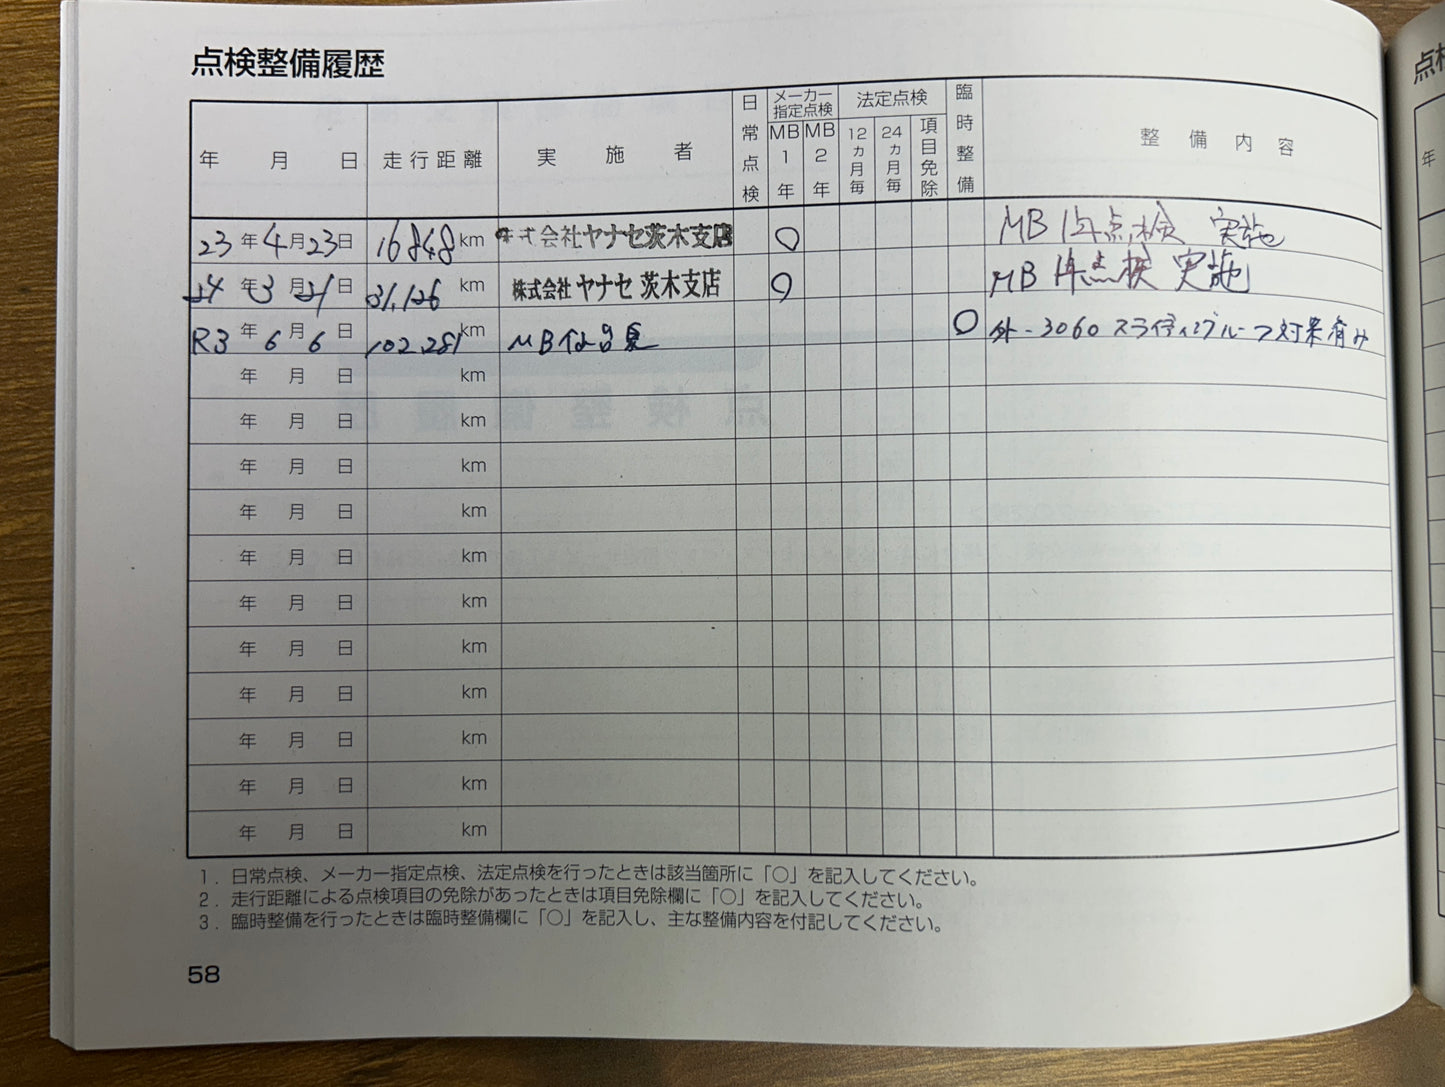 点検整備履歴
年 月 日 走行距離 実施者 日常点検 メーカー指定点検 MB1年 MB2年 法定点検 12ヵ月毎 24ヵ月毎 項目免除 臨時整備 整備内容
23年4月23日 16848km 株式会社ヤナセ茨木支店 ○ MB 1年点検 実施
24年3月21日 31,126km 株式会社ヤナセ 茨木支店 ○ MB 1年点検 実施
R3年6月6日 102,281km MB ○ 外-3060 スライディングルーフ対策済み
年 月 日 km
年 月 日 km
年 月 日 km
年 月 日 km
年 月 日 km
年 月 日 km
年 月 日 km
年 月 日 km
年 月 日 km
年 月 日 km
年 月 日 km
1. 日常点検、メーカー指定点検、法定点検を行ったときは該当箇所に「○」を記入してください。
2. 走行距離による点検項目の免除があったときは項目免除欄に「○」を記入してください。
3. 臨時整備を行ったときは臨時整備欄に「○」を記入し、主な整備内容を付記してください。
58
点
年